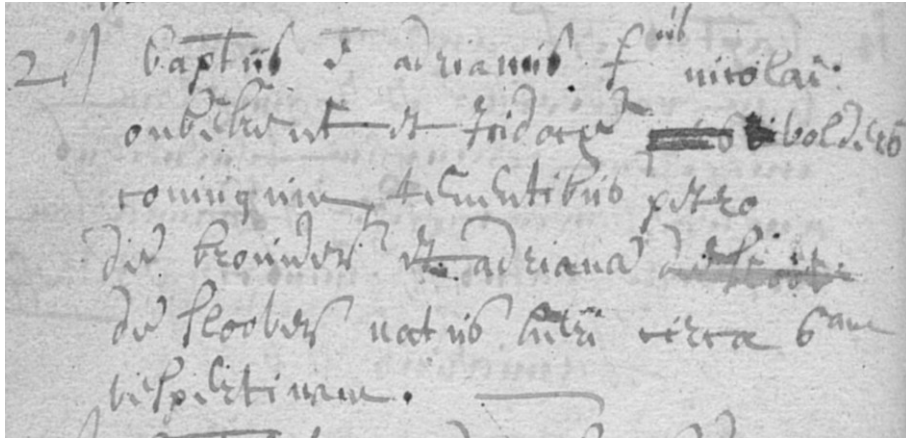 21 baptus e adrianus f us nicolai
onbekent et Isidorae bolders
coniugum tenentibus petro
de brouder et adriana
de sloober natus heri circa 6 am
vespertinam.